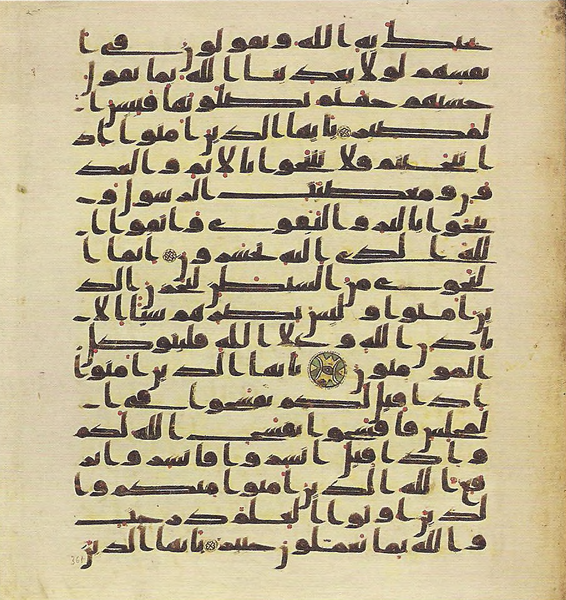 يحيك به الله ويقولون في ا
نفسهم لولا يعذبنا الله بما نقول
حسبهم جهنم يصلونها فبئس ا
لمصير يايها الذين امنوا اذ
ا تنجيتم فلا تتنجوا بالاثم والعد
ون ومعصيت الرسول و
تنجوا بالبر والتقوى واتقوا ا
لله الذي اليه تحشرون انما ا
لنجوى من الشيطن ليحزن الذ
ين امنوا وليس بضرهم شيئا الا
باذن الله وعلى الله فليتوكل
المومنون يايها الذين امنوا
اذا قيل لكم تفسحوا في ا
لمجلس فافسحوا يفسح الله لكم
واذا قيل انشزوا فانشزوا ير
فع الله الذين امنوا منكم وا
لذين اوتوا العلم درجت
والله بما تعملون خبير يايها الذين